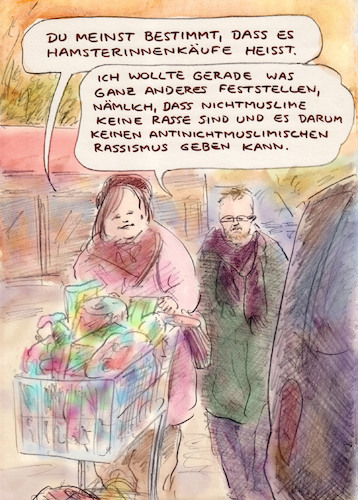 DU MEINST BESTIMMT, DASS ES
HAMSTERINNENKÄUFE HEISST.
ICH WOLLTE GERADE WAS
GANZ ANDERES FESTSTELLEN,
NÄMLICH, DASS NICHTMUSLIME
KEINE RASSE SIND UND ES DARUM
KEINEN ANTINICHTMUSLIMISCHEN
RASSISMUS GEBEN KANN.